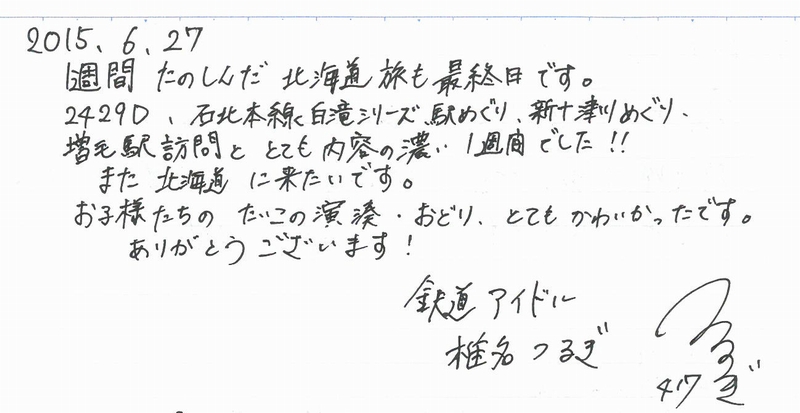 2015.6.27
1週間 たのしんだ 北海道旅も最終日です。
2429D、石北本線く白滝シリーズ駅めぐり、新十津川めぐり、
増毛駅訪問と とても内容の濃い1週間でした!!
また北海道に来たいです。
お子様たちの たいこの演湊・おどり、とてもかわいかったです。
ありがとうございます!
鉄道アイドル
椎名つるぎ
つるぎ